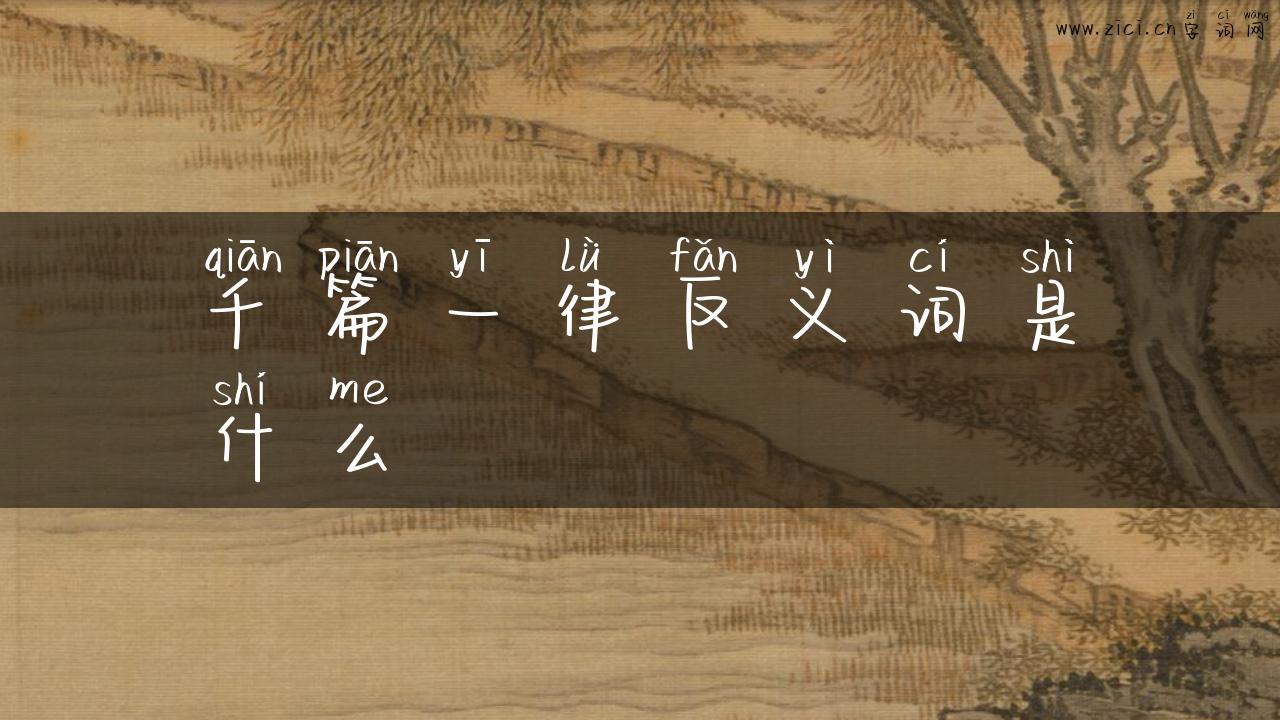 zì cí wǎng
www.zici.cn字词网
qiān piān yī lǜ fǎn yì cí shì
千篇一律反义词是
shí me
什么